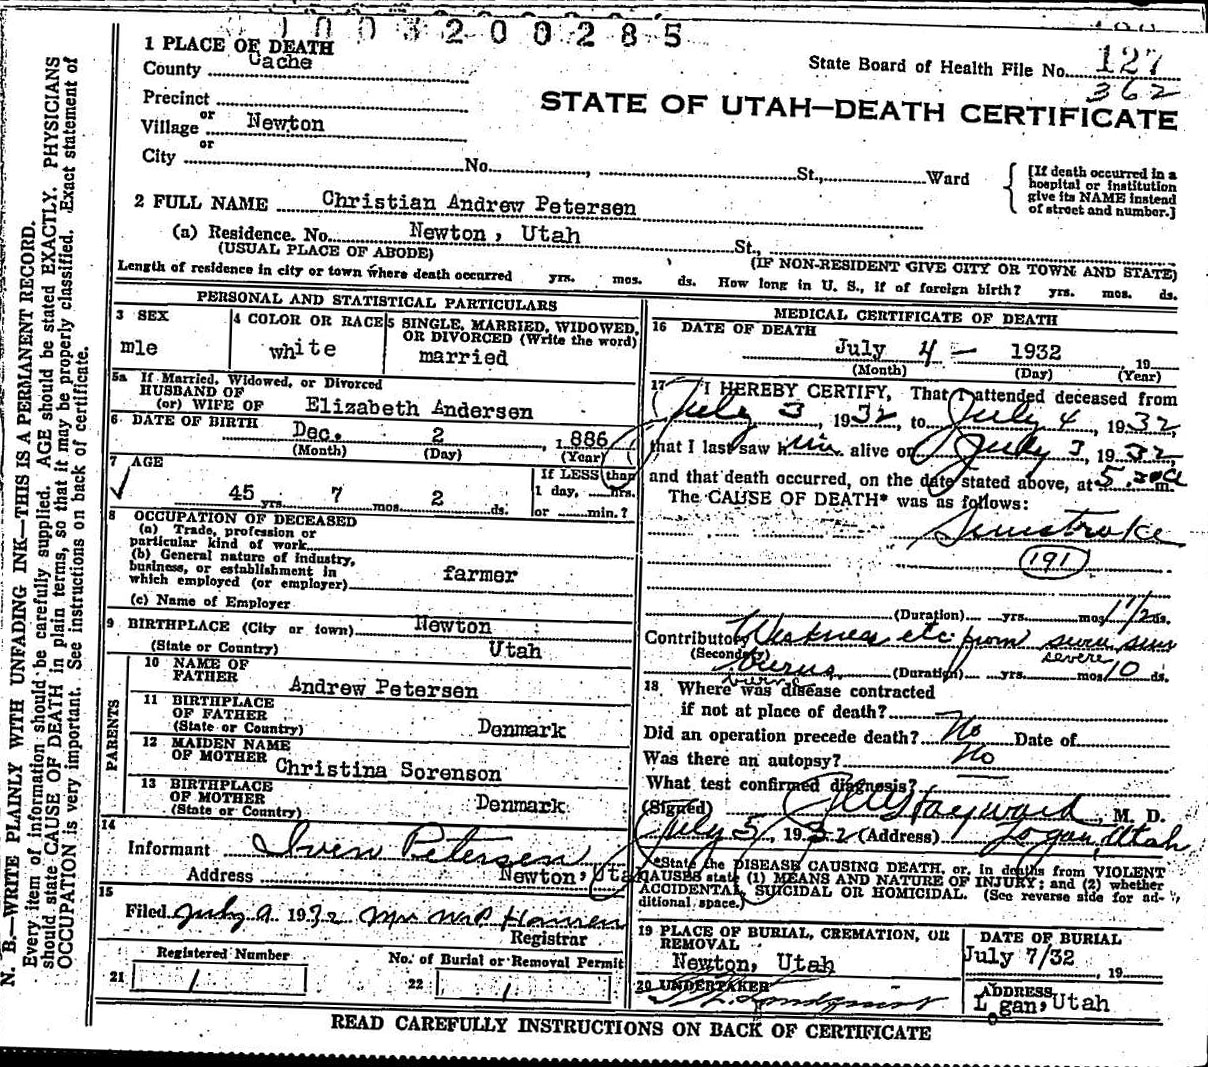 1003200285
1 PLACE OF DEATH
County Cache
State Board of Health File No. 127
362
Precinct
STATE OF UTAH—DEATH CERTIFICATE
or
Village Newton
or
City No. , St., Ward
[If death occurred in a
hospital or institution
give its NAME instead
of street and number.]
2 FULL NAME Christian Andrew Petersen
(a) Residence. No. Newton, Utah St.,
(USUAL PLACE OF ABODE) (IF NON-RESIDENT GIVE CITY OR TOWN AND STATE)
Length of residence in city or town where death occurred yrs. mos. ds. How long in U. S., if of foreign birth? yrs. mos. ds.
PERSONAL AND STATISTICAL PARTICULARS
3 SEX
mle
4 COLOR OR RACE
white
5 SINGLE, MARRIED, WIDOWED,
OR DIVORCED (Write the word)
married
5a If Married, Widowed, or Divorced
HUSBAND OF
(or) WIFE OF Elizabeth Andersen
6 DATE OF BIRTH Dec. 2 , 1 886
(Month) (Day) (Year)
7 AGE
45 yrs. 7 mos. 2 ds.
If LESS than
1 day, hrs.
or min.?
8 OCCUPATION OF DECEASED
(a) Trade, profession or
particular kind of work
(b) General nature of industry,
business, or establishment in
which employed (or employer) farmer
(c) Name of Employer
9 BIRTHPLACE (City or town) Newton
(State or Country) Utah
PARENTS
10 NAME OF
FATHER Andrew Petersen
11 BIRTHPLACE
OF FATHER
(State or Country) Denmark
12 MAIDEN NAME
OF MOTHER Christina Sorenson
13 BIRTHPLACE
OF MOTHER
(State or Country) Denmark
14
Informant Iven Petersen
Address Newton, Utah
15
Filed July 9 1932 Mrs Hansen
Registrar
Registered Number
21 1
No. of Burial or Removal Permit
22 1
MEDICAL CERTIFICATE OF DEATH
16 DATE OF DEATH
July 4 — 1932 19
(Month) (Day) (Year)
17 I HEREBY CERTIFY, That I attended deceased from
July 3, 1932, to July 4, 1932,
that I last saw him alive on July 3, 1932,
and that death occurred, on the date stated above, at 5.30a m.
The CAUSE OF DEATH* was as follows:
Sunstroke
191
(Duration) yrs. mos. 1 1/2 ds.
Contributory Weakness etc from severe sun
(Secondary) severe
burns (Duration) yrs. mos. 10 ds.
burns
18 Where was disease contracted
if not at place of death?
Did an operation precede death? No Date of
Was there an autopsy? No
What test confirmed diagnosis?
(Signed) Hayward, M. D.
July 5, 1932 (Address) Logan, Utah
*State the DISEASE CAUSING DEATH, or, in deaths from VIOLENT
CAUSES state (1) MEANS AND NATURE OF INJURY; and (2) whether
ACCIDENTAL, SUICIDAL OR HOMICIDAL. (See reverse side for ad-
ditional space.)
19 PLACE OF BURIAL, CREMATION, OR
REMOVAL
Newton, Utah
DATE OF BURIAL
July 7/32
, 19
20 UNDERTAKER
ADDRESS
Logan, Utah
READ CAREFULLY INSTRUCTIONS ON BACK OF CERTIFICATE
N. B.—WRITE PLAINLY WITH UNFADING INK—THIS IS A PERMANENT RECORD.
Every item of information should be carefully supplied. AGE should be stated EXACTLY. PHYSICIANS
should state CAUSE OF DEATH in plain terms, so that it may be properly classified. Exact statement of
OCCUPATION is very important. See instructions on back of certificate.